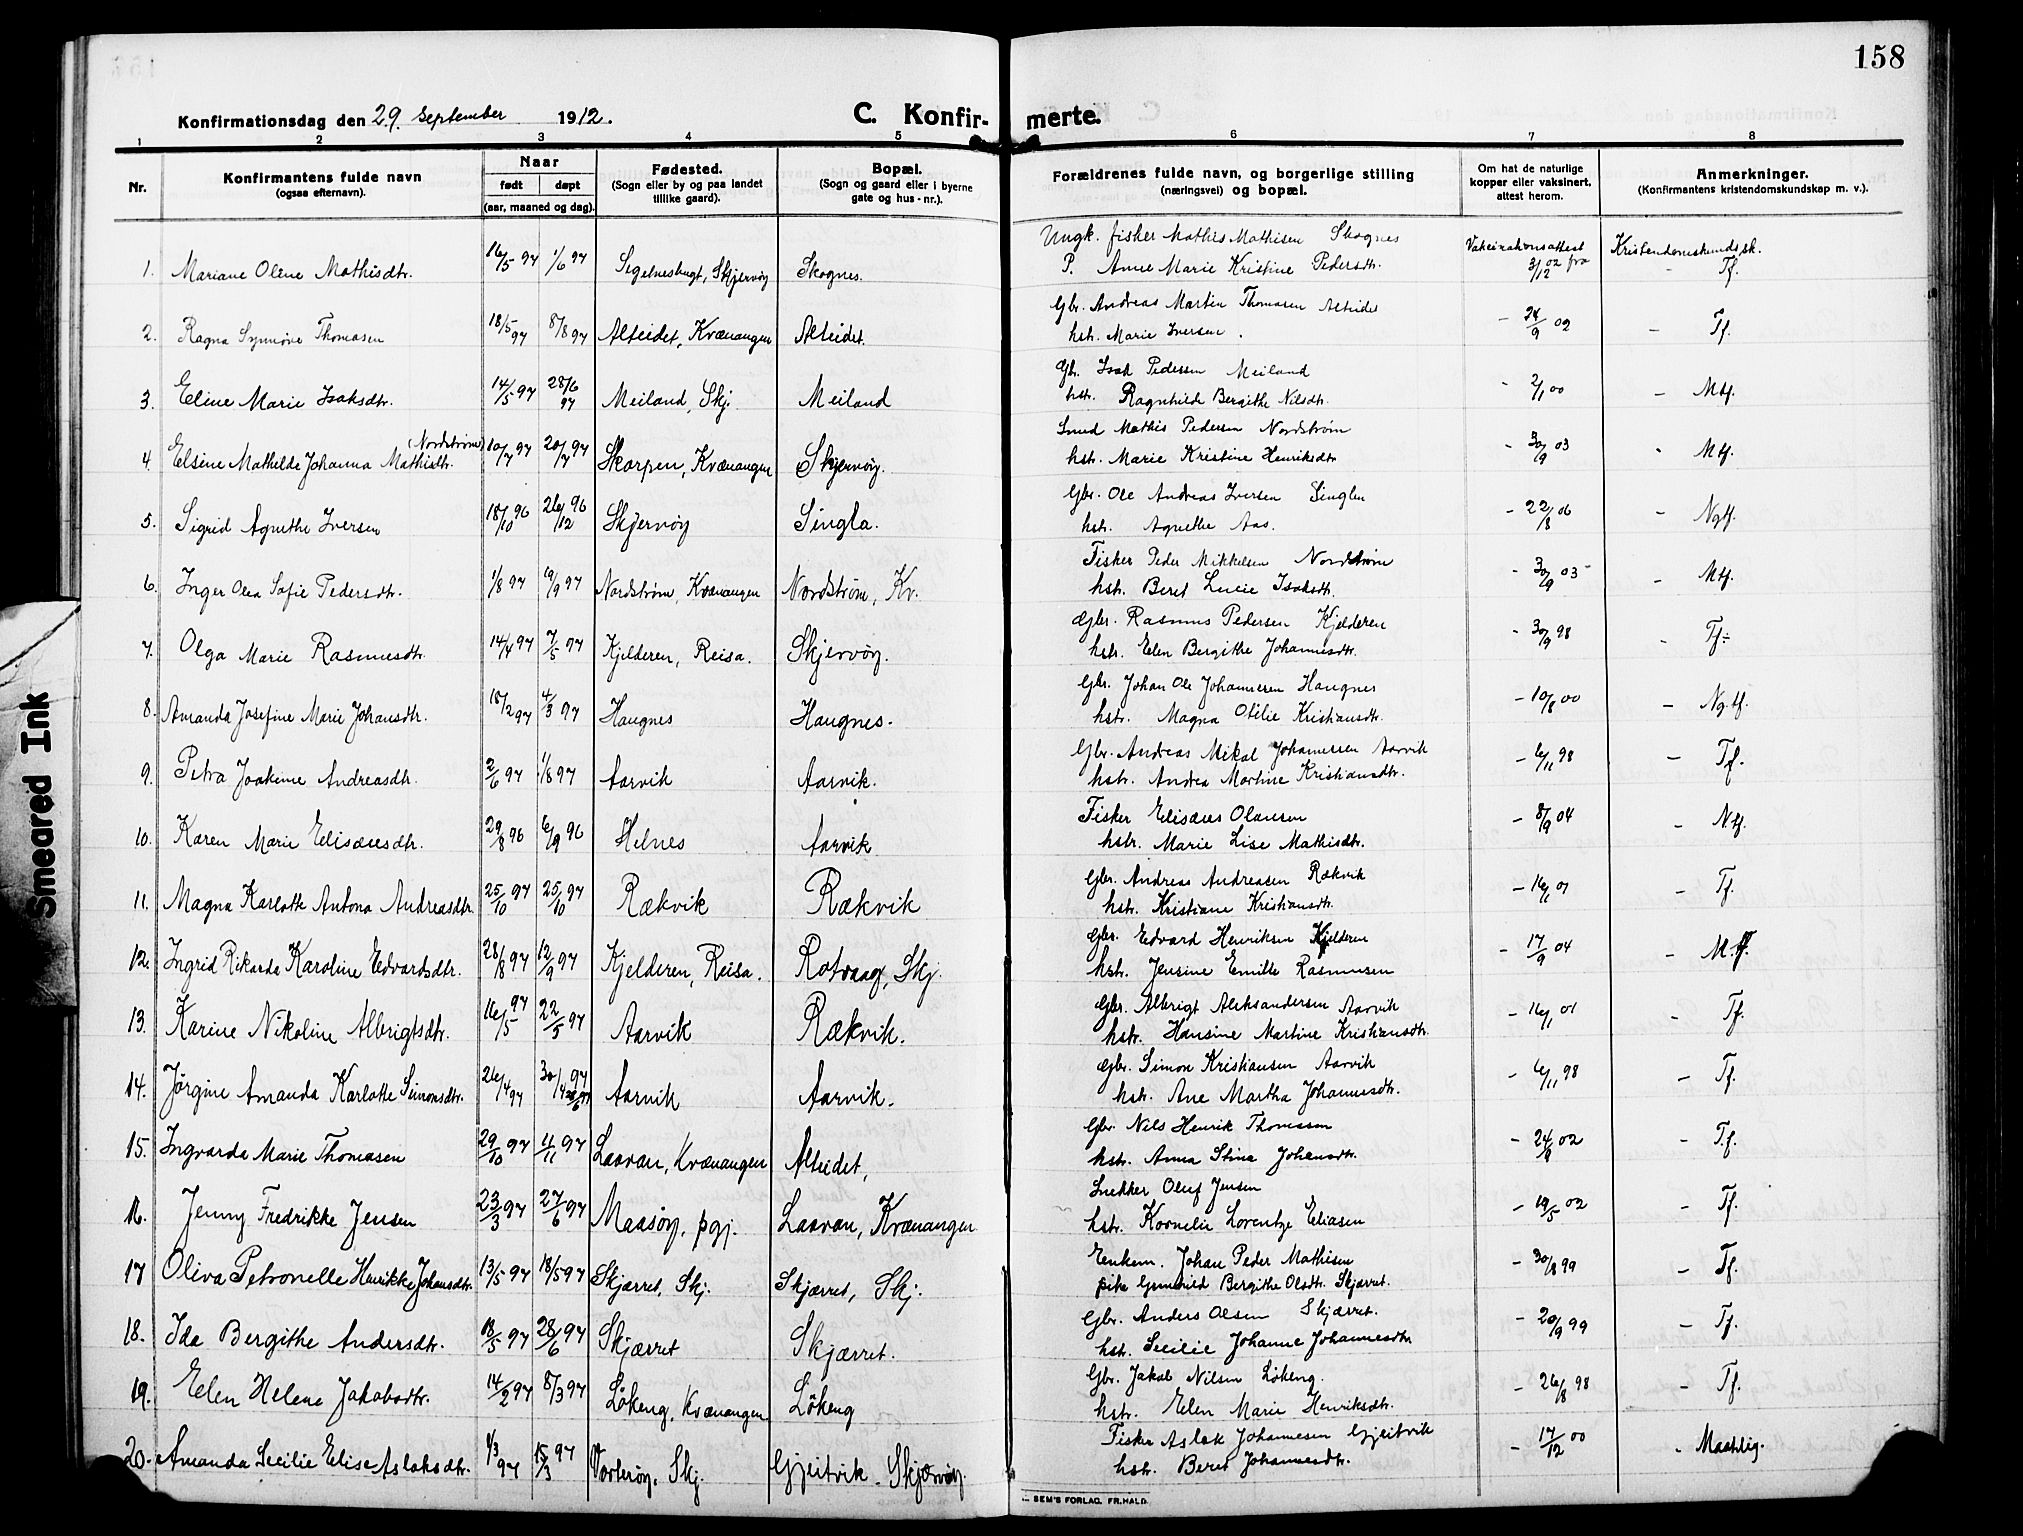 158
Konfirmationsdag den 29. september 1912.
C. Konfirmerte.
1 2 3 4 5 6 7 8
Nr.
Konfirmantens fulde navn
(ogsaa efternavn).
Naar
født døpt
(aar, maaned og dag).
Fødested.
(Sogn eller by og paa landet
tillike gaard).
Bopæl.
(Sogn og gaard eller i byerne
gate og hus-nr.).
Forældrenes fulde navn, og borgerlige stilling
(næringsvei) og bopæl.
Om hat de naturlige
kopper eller vaksinert,
attest herom.
Anmerkninger.
(Konfirmantens kristendomskundskap m. v.).
Ungk. fisker Mathis Mathisen Skognes Vaksinationsattest Kristendomskundsk.
1. Mariane Oline Mathisdtr. 16/5 97 1/6 97 Segelnesbugt, Skjervøy Skognes. P. Anne Marie Kristine Pedersdtr. 3/12 02 fra - Tf.
Gbr. Andreas Martin Thomasen Alteidet
2. Ragna Synnøve Thomasen 18/5 97 8/8 97 Alteidet, Kvænangen Alteidet. hstr. Marie Iversen. - 24/9 02 - Tf.
Gbr. Isak Pedersen Meiland
3. Eline Marie Isaksdtr. 14/5 97 28/6 97 Meiland, Skj. Meiland hstr. Ragnhilde Bergithe Nilsdtr. - 2/1 00 - Mtf.
(Nordstrøm) Smed Mathis Pedersen Nordstrøm
4. Elsine Mathilde Johanna Mathisdtr. 10/7 97 20/7 97 Skorpen, Kvænangen Skjervøy. hstr. Marie Kristine Henriksdtr - 30/9 03 - Mtf.
Gbr. Ole Andreas Iversen Singlen
5. Sigrid Agnethe Iversen 18/10 96 26/12 96 Skjervøy Singla. hstr. Agnethe Aas. - 22/8 06 - Ngtf.
Fisker Peder Mikkelsen Nordstrøm
6. Inger Olea Sofie Pedersdtr. 1/8 97 19/9 97 Nordstrøm, Kvænangen Nordstrøm, Kv. hstr. Beret Lucie Isaksdtr. - 30/9 03 - Mtf.
Gbr. Rasmus Pedersen Kjelderen
7. Olga Marie Rasmusdtr. 14/4 97 7/5 97 Kjelderen, Reisa. Skjervøy. hstr. Elen Bergithe Johannesdtr. - 30/9 98 - Tf÷
Gbr. Johan Ole Johannesen Haugnes
8. Amanda Josefine Marie Johansdtr. 18/2 97 4/3 97 Haugnes Haugnes. hstr. Magna Otilie Kristiansdtr. - 10/8 00 - Ng.tf.
Gbr. Andreas Mikal Johannesen Aarvik
9. Petra Joakime Andreasdtr. 2/6 97 1/8 97 Aarvik Aarvik. hstr. Andrea Martine Kristiansdtr. - 6/11 98 - Tf.
Fisker Elisæus Olausen
10. Karen Marie Elisæusdtr. 29/8 96 6/9 96 Helnes Aarvik hstr. Marie Lise Mathisdtr. - 8/9 04 - Ntf.
Gbr. Andreas Andreasen Rækvik
11. Magna Karlotte Antona Andreasdtr. 25/10 97 25/10 97 Rækvik Rækvik hstr. Kristiane Kristiansdtr. - 16/1 01 - Tf.
Gbr. Edvard Henriksen Kjelderen
12. Ingrid Rikarda Karoline Edvardsdtr. 28/8 97 12/9 97 Kjelderen, Reisa. Rotvaag, Skj. hstr. Jensine Emilie Rasmusen - 17/9 04 - M.tf.
Gbr. Albrigt Aleksandersen Aarvik
13. Karine Nikoline Albrigtsdtr. 16/5 97 22/5 97 Aarvik Rækvik. hstr. Hansine Martine Kristiansdtr. - 16/1 01 - Tf.
Gbr. Simon Kristiansen Aarvik
14. Jørgine Amanda Karlotte Simonsdtr. 26/4 97 30/4 97 Aarvik Aarvik. hstr. Ane Martha Johannesdtr. - 6/11 98 - Tf.
Gbr. Nils Henrik Thomasen
15. Ingvarda Marie Thomasen 29/10 97 4/11 97 Laavan, Kvænangen Alteidet, hstr. Anna Stina Johansdtr. - 24/9 02 - Tf.
Snekker Oluf Jensen
16. Jenny Fredrikke Jensen 23/3 97 27/6 97 Maasøy, pgj. Laavan, Kvænangen hstr. Kornelie Lorentze Eliasen - 19/5 02 - Tf.
Enkem. Johan Peder Mathisen
17 Oliva Petronelle Henrikke Johansdtr. 13/5 97 18/5 97 Skjærret, Skj. Skjærret, Skj. pike Gunhild Bergithe Olsdtr. Skjærret. - 30/8 99 - Tf.
Gbr. Anders Olsen Skjærret.
18. Ida Bergithe Andersdtr. 18/5 97 28/6 97 Skjærret Skjærret. hstr. Secilie Johanne Johannesdtr - 20/9 99 - Tf.
Gbr. Jakob Nilsen Løkeng.
19. Elen Helene Jakobsdtr. 14/2 97 8/3 97 Løkeng, Kvænangen Løkeng hstr. Elen Marie Henriksdtr. - 26/8 98 - Tf.
Fisker Aslak Johannesen Gjeitvik
20. Amanda Secilie Elise Aslaksdtr. 1/3 97 15/3 97 Vorterøy, Skj. Gjeitvik - Skjærvøy. hstr. Beret Johannesdtr. - 17/12 00 - Maatelig.
SEM'S FORLAG. FR.HALD.
Smeared Ink